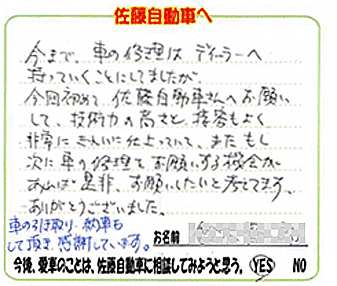 佐藤自動車へ
今まで、車の修理はディーラーへ
持っていくことにしてましたが、
今回初めて、佐藤自動車さんへお願い
して、技術力の高さと、接客もよく
非常にきれいに仕上っていて、また もし
次に車の修理をお願いする機会が
あれば 是非、お願いしたいと考えてます。
ありがとうございました。
車の引き取り、納車も
して頂き 感謝しています。
お名前
今後、愛車のことは、佐藤自動車に相談してみようと思う。 YES NO